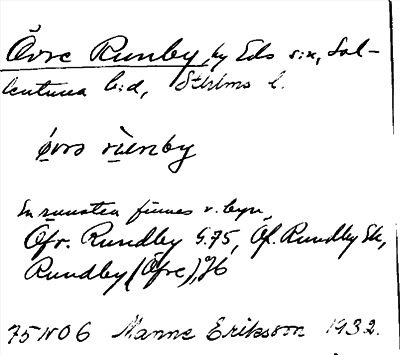 Övre Runby, by Eds s:n, Sol-
lentuna h:d, Sthlms l.
øvrə rùnby
En runsten finnes v. byn.
Öfr. Rundby G.75, Öf. Rundby Sk,
Rundby (Öfre), J6
75 NO 6 Manne Eriksson 1932.